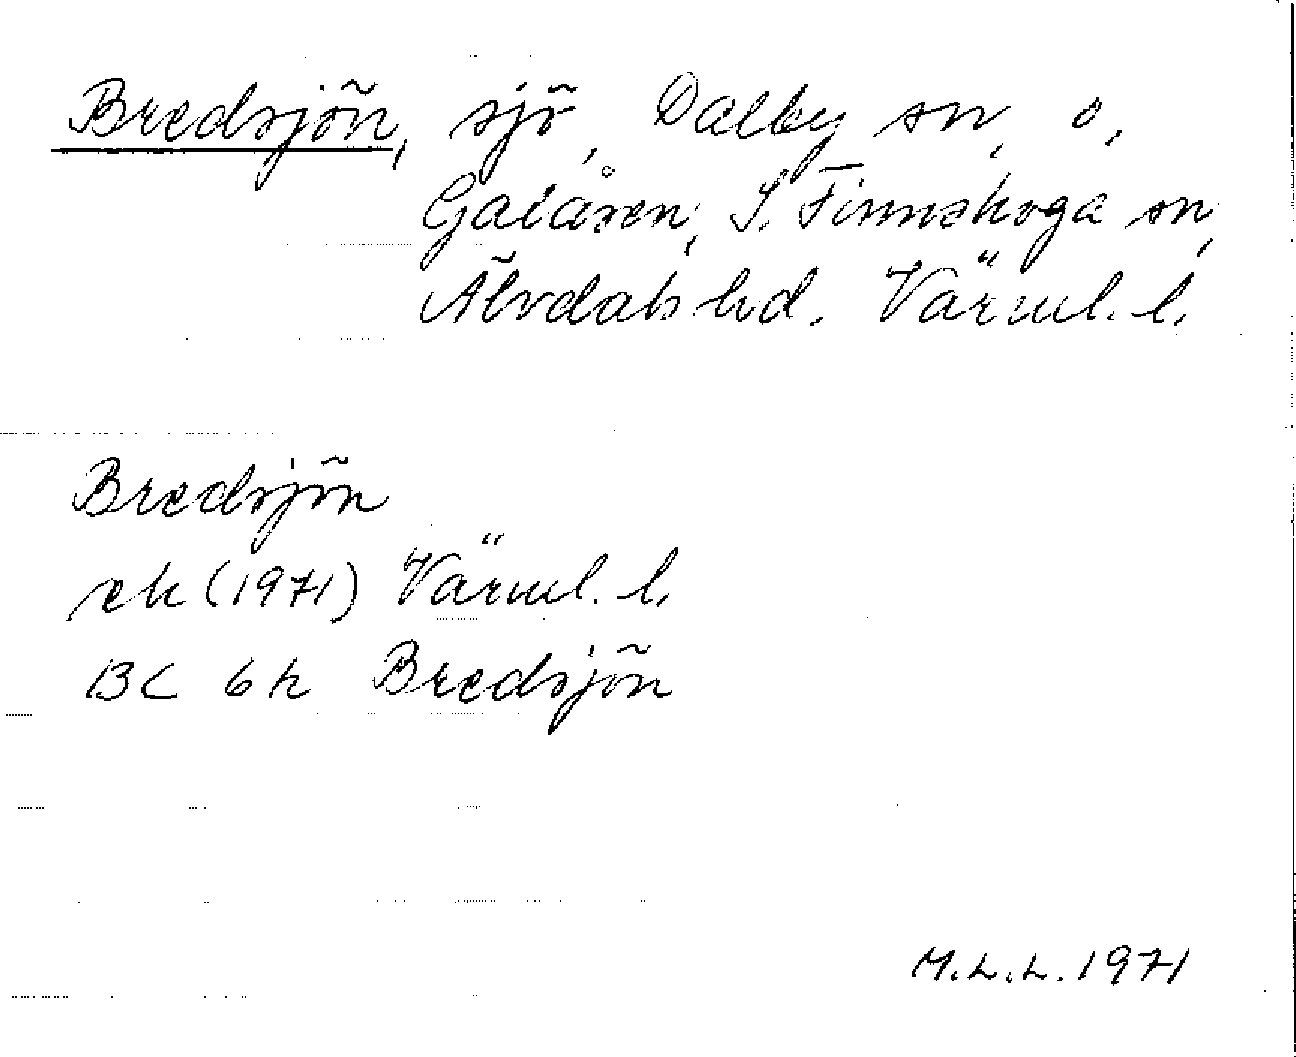 Bredsjön, sjö, Dalby sn, o,
Galåsen, S. Finnskoga sn,
Älvdals hd. Värml. l.
Bredsjön
ek (1971) Värml. l.
BC 6 h Bredsjön
M.L.L. 1971